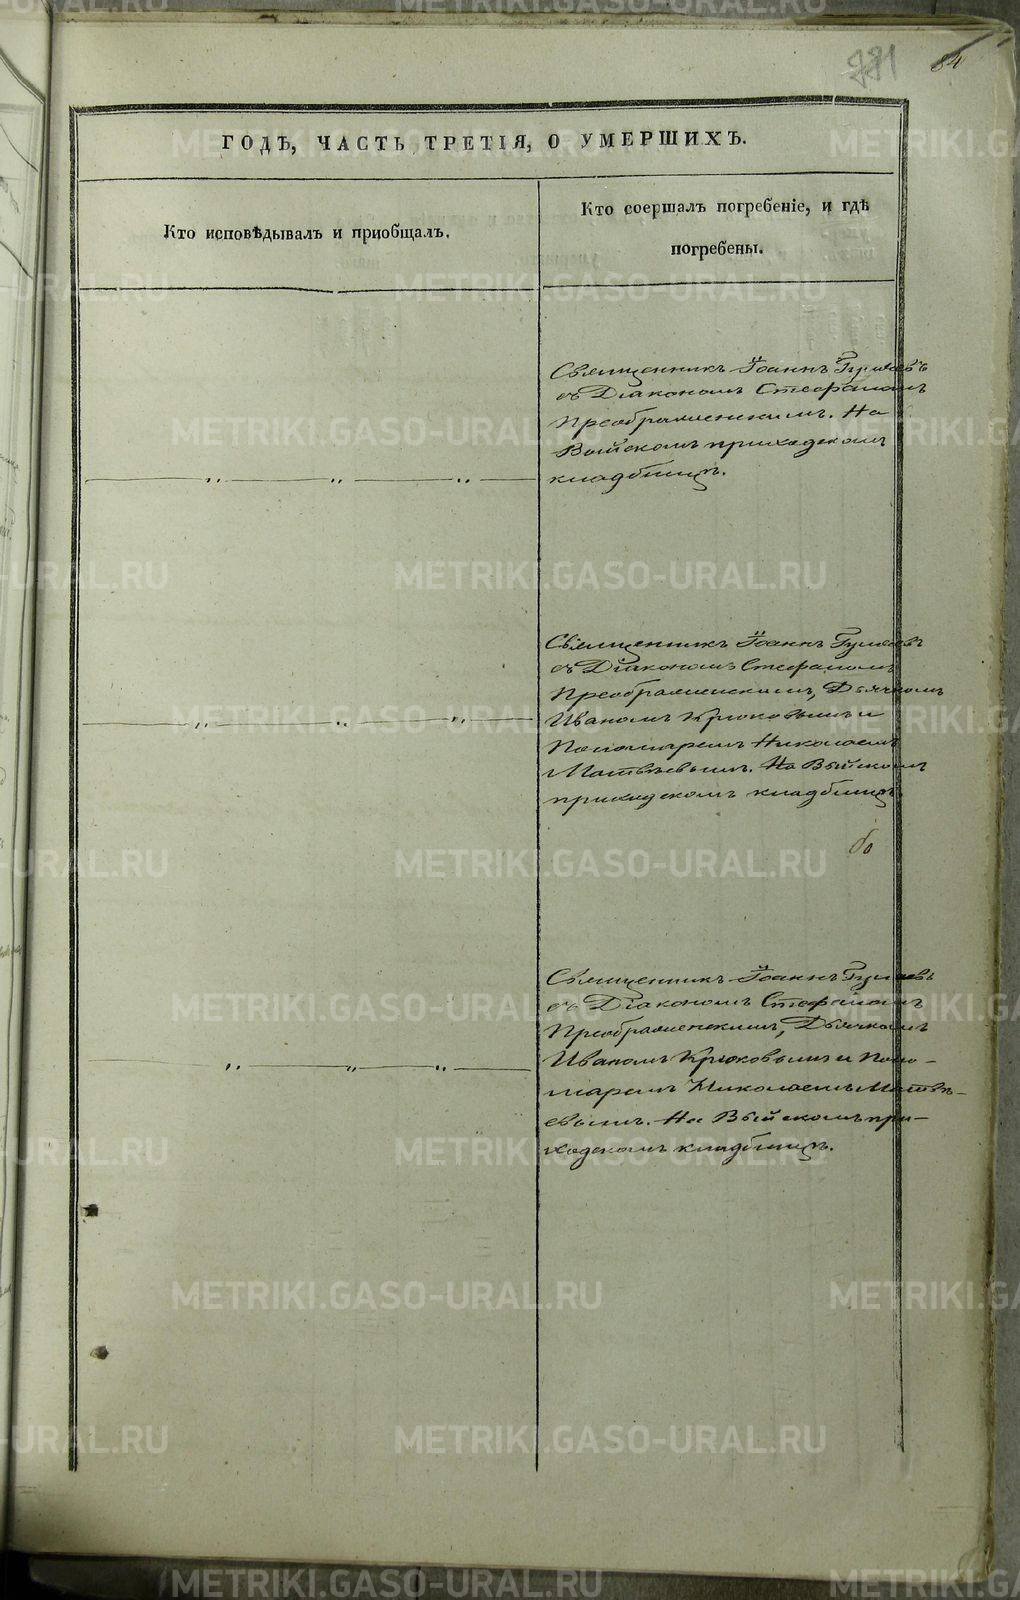 84
ГОДѢ, ЧАСТЬ ТРЕТІЯ, О УМЕРШИХЪ.
Кто исповѣдывалъ и приобщалъ.
Кто соершалъ погребеніе, и гдѣ
погребены.
Священникъ Іоаннъ Гуляевъ
съ Діакономъ Стефаномъ
Преображенскимъ. На
Выйскомъ приходскомъ
кладбищѣ.
Священникъ Іоаннъ Гуляевъ
съ Діакономъ Стефаномъ
Преображенскимъ, Дьячкомъ
Иваномъ Крюковымъ и
Пономаремъ Николаемъ
Матвѣевымъ. На Выйскомъ
приходскомъ кладбищѣ
Священникъ Іоаннъ Гуляевъ
съ Діакономъ Стефаномъ
Преображенскимъ, Дьячкомъ
Иваномъ Крюковымъ и Поно-
маремъ Николаемъ Матвѣ-
евымъ. На Выйскомъ при-
ходскомъ кладбищѣ.
METRIKI.GASO-URAL.RU